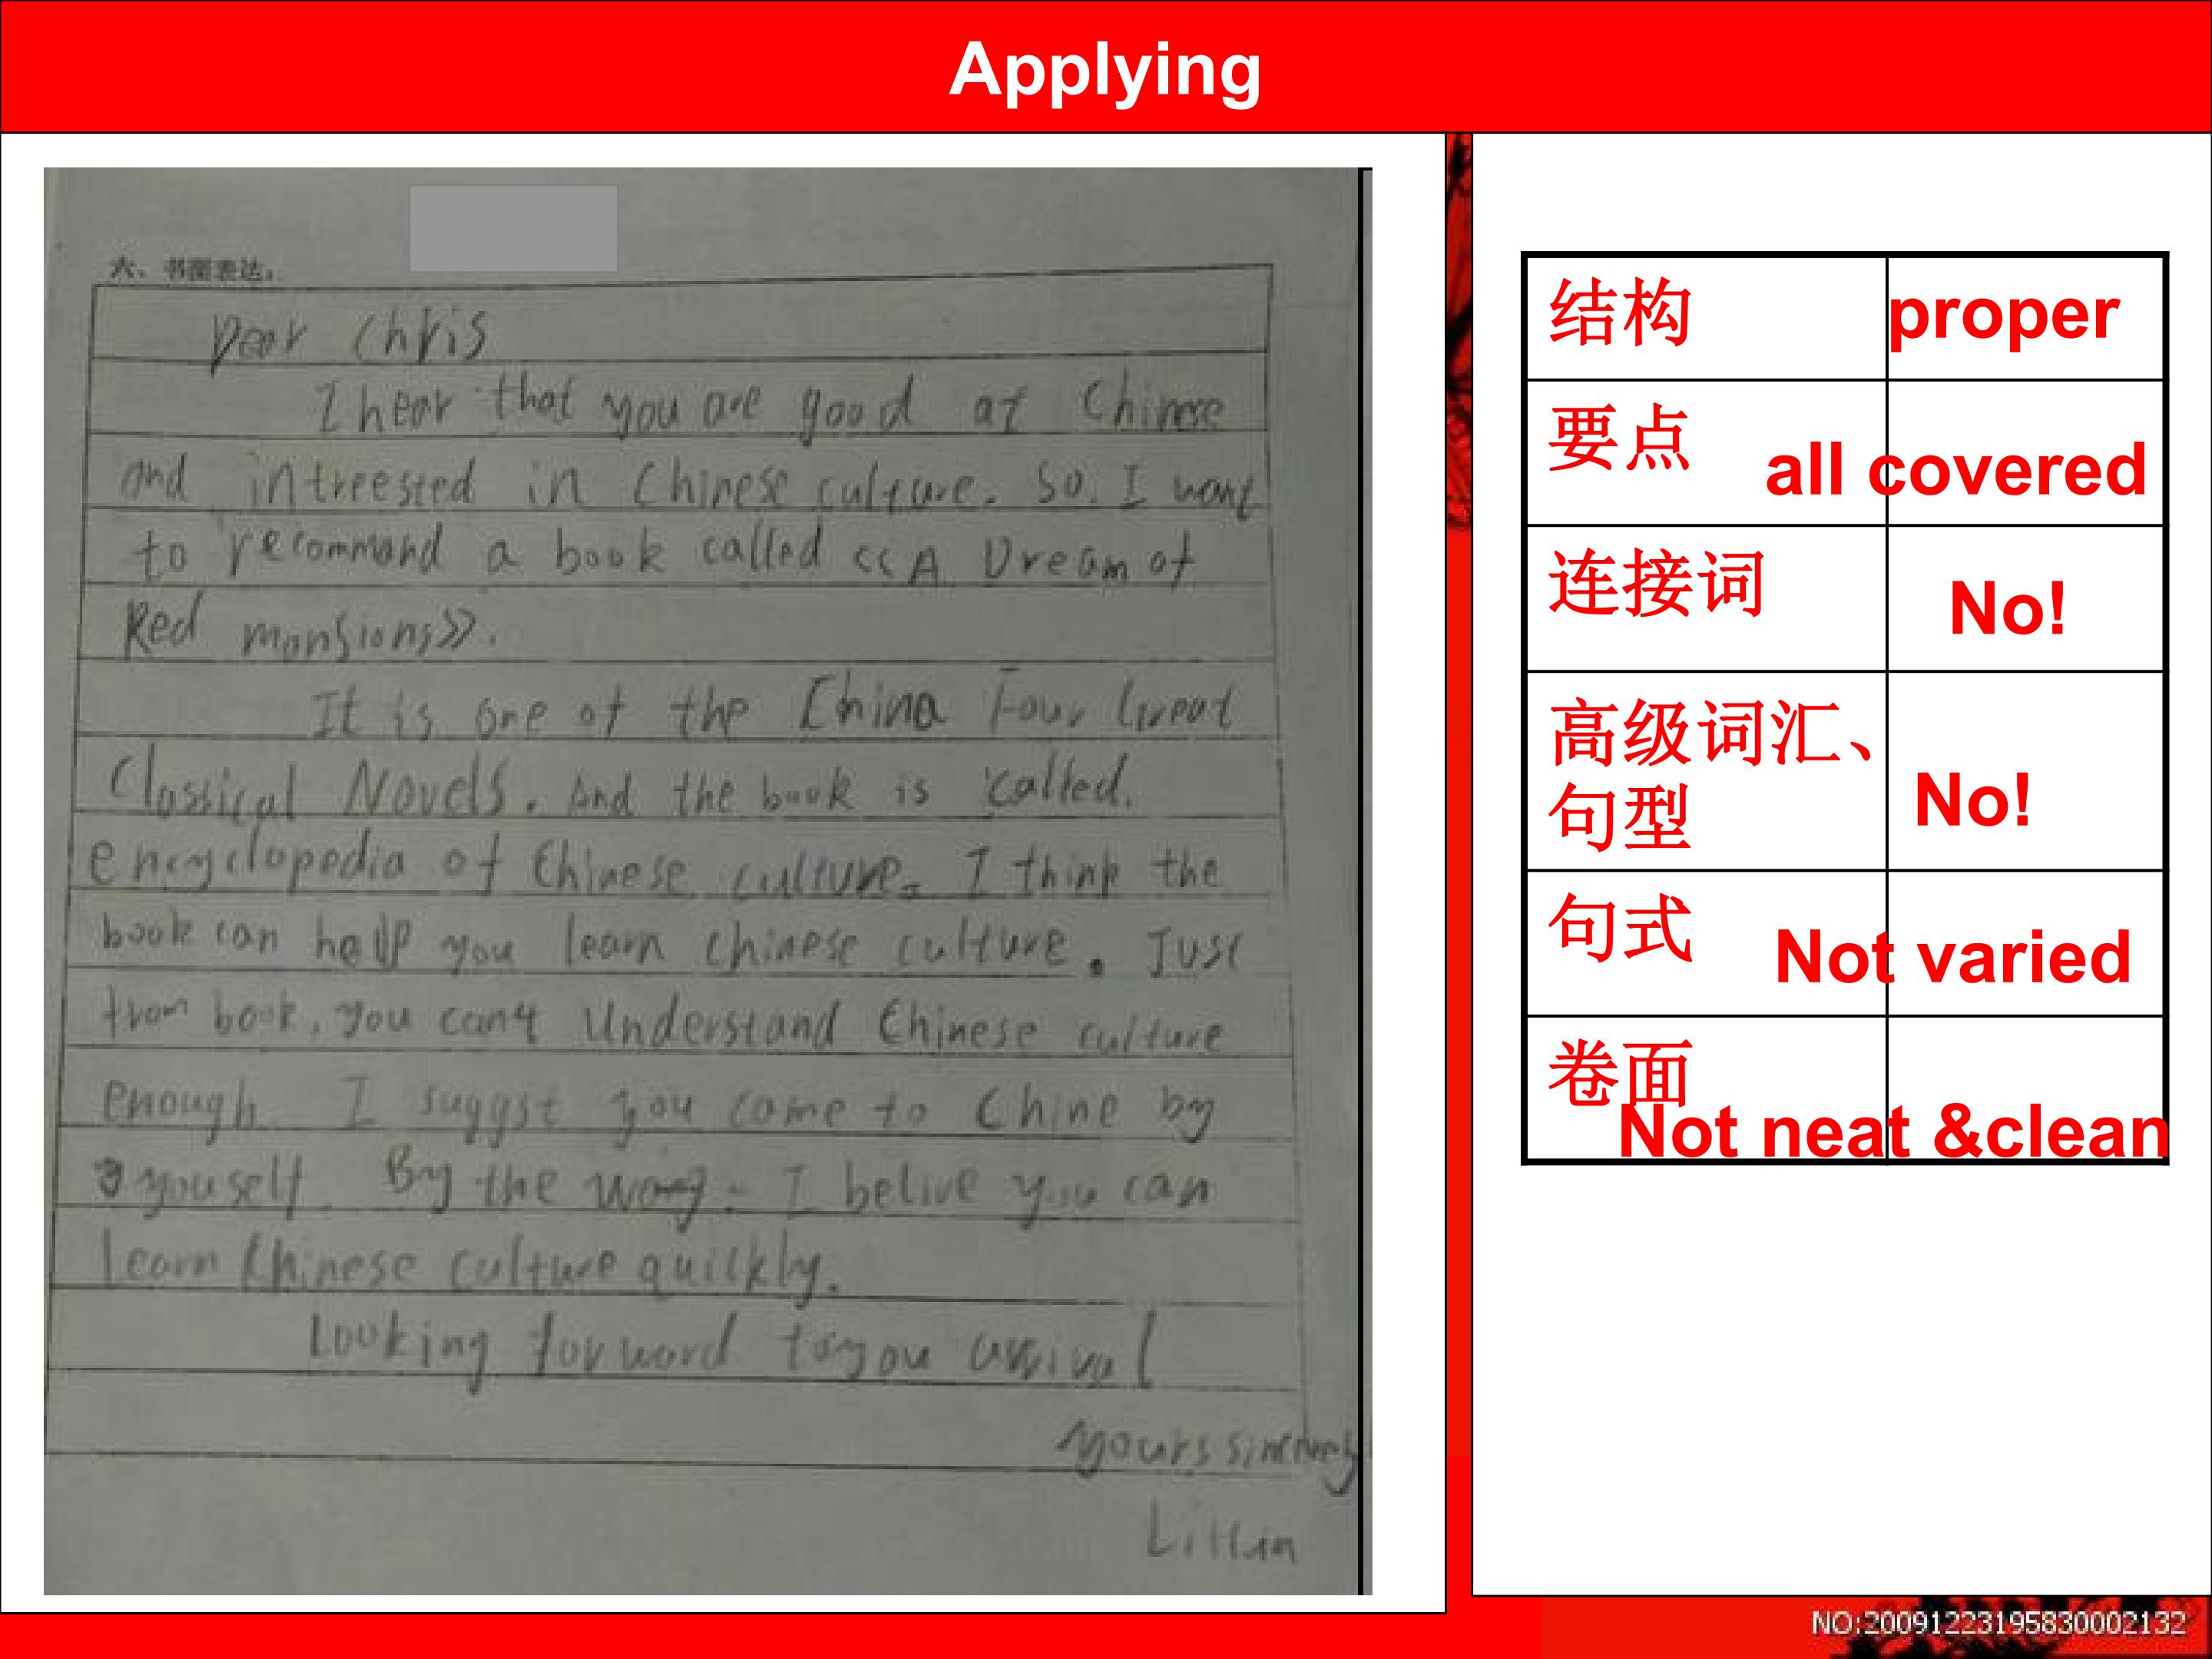 Applying
六、书面表达。
Dear Chris
I hear that you are good at Chinese
and intreested in Chinese culture. So. I want
to recommand a book called <<A Dream of
Red mansions>>.
It is one of the China Four Great
Classical Novels. And the book is called.
encyclopedia of Chinese culture. I think the
book can help you learn Chinese culture. Just
from book, you can't understand Chinese culture
enough. I suggst you come to Chine by
youself. By the way. I belive you can
learn Chinese culture quickly.
Looking forward to you arrival
yours sincerely
LiHua
结构 proper
要点 all covered
连接词 No!
高级词汇、
句型 No!
句式 Not varied
卷面 Not neat &clean
NO:20091223195830002132